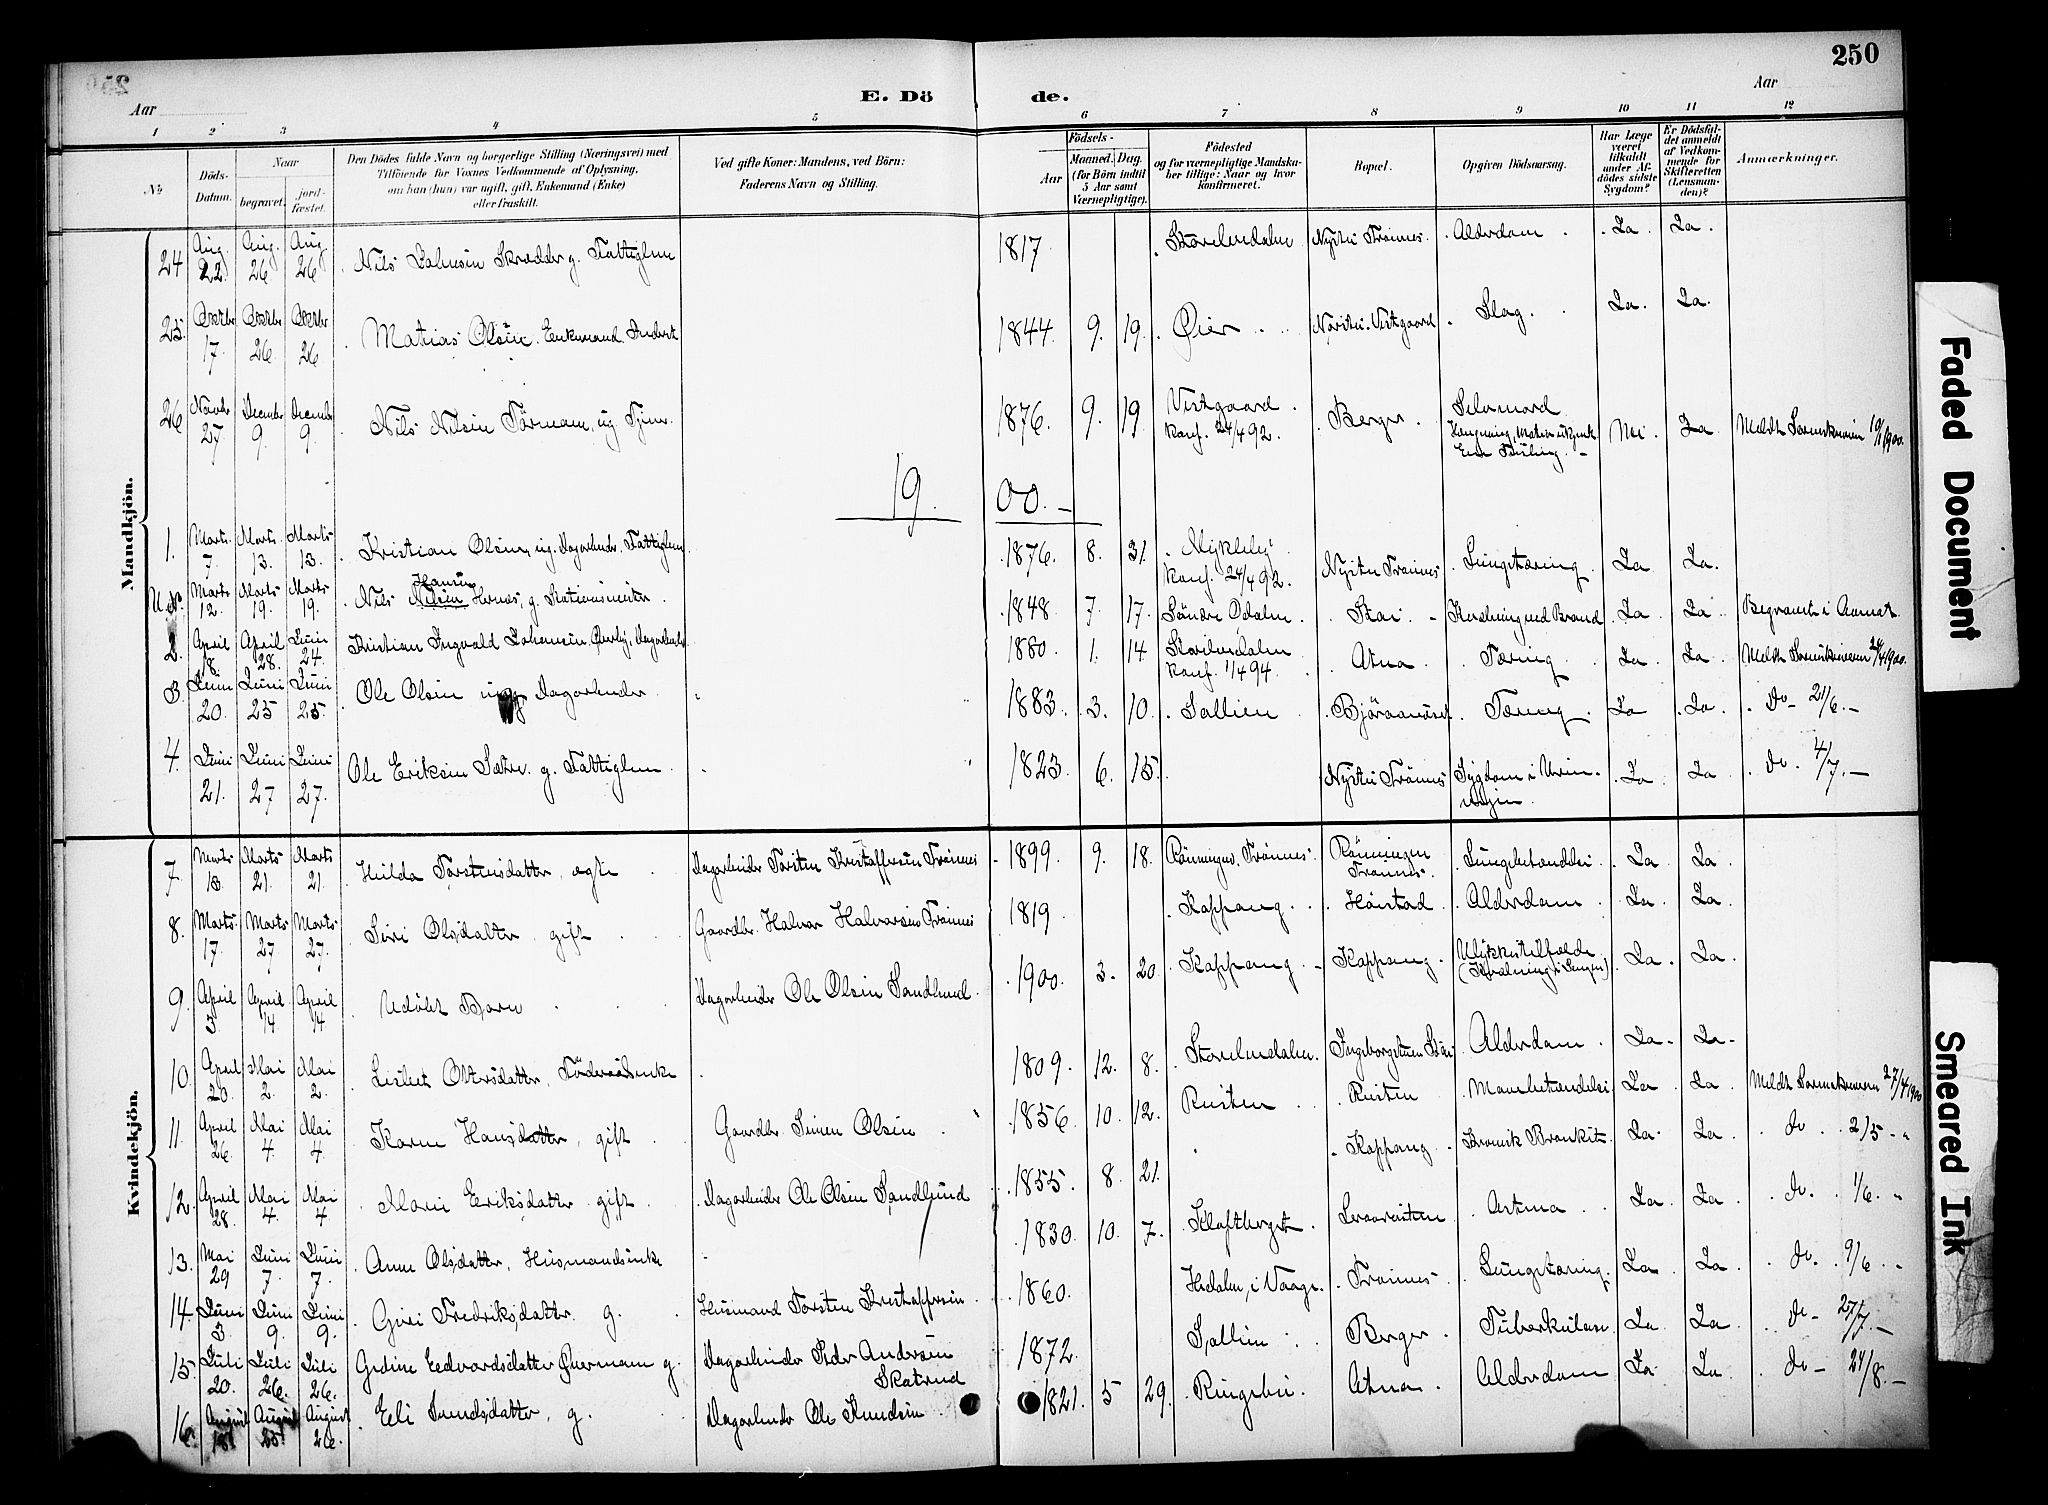 250
Aar
E. Dö
de.
Aar
1 2 3 4 5 6 7 8 9 10 11 12
No.
Döds-Datum.
Naar
begravet.
jord-fæstet.
Den Dödes fulde Navn og borgerlige Stilling (Næringsvei) med
Tilföiende for Voxnes Vedkommende af Oplysning,
om han (hun) var ugift, gift, Enkemand (Enke)
eller fraskilt.
Ved gifte Koner: Mandens, ved Börn:
Faderens Navn og Stilling.
Födsels-
Aar
Maaned. Dag.
(for Börn indtil
5 Aar samt
Værnepligtige).
Födested
og for værnepligtige Mandska-
ber tillige: Naar og hvor
konfirmeret.
Bopæl.
Opgiven Dödsaarsag.
Har Læge
været
tilkaldt
under Af-
dödes sidste
Sygdom?
Er Dödsfal-
det anmeldt
af Vedkom-
mende for
Skifteretten
(Lensman-
den)?
Anmærkninger.
Mandkjön.
24 Aug. 22. Aug. 26 Aug. 26 Nils Johnsen Skrædder g. Fattiglem 1817 Storelvedalen Nystu Trønnes Alderdom Ja Ja
25. 17. 26 26 Matias Olsen Enkemand Inderst 1844 9. 19. Øier Vestgaard Slag Ja Ja
26 Novbr 27 December 9. December 9 Nils Nilsen Tørmoen, ug Tjen. 1876 9. 19 Vestgaard Konf. 24/4 92. Berger Selvmord Hængning Nei Ja Meldt Sorenskriveren 10/1 1900.
1900.-
1. Marts 7. Marts 13. Marts 13. Kristian Olsen, ug. Dagarbeider, Fattiglem 1876 8. 31. Myklebyˢ Konf. 24/4 92. Nystu Trønnes Lungetæring Ja Ja
U.No. Marts 12. Marts 19. Marts 19. Nils Hansen Nilsen Hernes, g. Stationsmester 1848 7. 17. Søndre Odalen Stai Kvæstning ved Brand Ja Ja Begravet i Aamot
2. April 18. April 28. Juni 24. Kristian Ingvald Johansen Øverby, Dagarbeider 1880 1. 14. Storelvedalen Konf. 1/4 94. Atna Tæring Ja Ja Meldt Sorenskriveren 24/4 1900.
3. Juni 20. Juni 25 Juni 25. Ole Olsen ug. Dagarbeider 1883. 3. 10. Sollien Bjøraanæset Tæring Ja Ja Do - 21/6.-
4. Juni 21. Juni 27 Juni 27. Ole Eriksen Sætre. g. Fattiglem 1823. 6. 15. Nystu Trønnes Sygdom i Urin- vegen. Ja Ja do. 4/7.-
Kvindekjön.
7. Marts 13. Marts 21. Marts 21. Hilda Torstensdatter, ægte Dagarbeider Torsten Kristoffersen Trønnes 1899 9. 18. Rønningen, Trønnes. Rønningen Trønnes. Lungebetændelse Ja Ja
8. Marts 17. Marts 27. Marts 27. Siri Olsdatter, gift Gaardbr. Halvor Halvorsen Trønnes 1819 Koppang Høistad Alderdom Ja Ja
9. April 3. April 14 April 14 Udøbt Barn Dagarbeider Ole Olsen Sandlund 1900. 3. 20. Koppang Koppang Ulykkestilfælde (Kvælning i Sengen) Ja Ja
10. April 20. Mai 2. Mai 2. Lisbet Ottersdatter, Føderaadsenke 1809. 12. 8. Storelvedalen Ingeborgstuen Alderdom Ja Ja
11. April 26. Mai 4. Mai 4. Karen Hansdatter, gift Gaardbr. Simen Olsen 1856 10. 12. Rusten Rusten Mavebetændelse Ja Ja Meldt Sorenskriveren 27/4 1900
12. April 28. Mai 4. Mai 4 Marie Eriksdatter gift Dagarbeider Ole Olsen Sandlund 1855. 8. 21. Koppang Kronisk Bronkit Ja Ja do 2/5
13. Mai 29 Juni 7. Juni 7. Anne Olsdatter, Husmandsenke 1830. 10. 7. Kloftberget Astma Ja Ja do. 1/6.
14. Juni 3. Juni 9. Juni 9. Guri Fredriksdatter g. Husmand Torsten Kristoffersen 1860. Hedalen, i Vaage Trønnes Lungetæring. Ja Ja do. 9/6
15. Juli 20. Juli 26. Juli 26. Gudine Eedvardsdatter Øvermoen g. Dagarbeider Peder Andersen Skatrud 1872. Sollien Berger Tuberkulose Ja Ja do - 25/7.-
16. August 18. August 25. August 26. Eli Knudsdatter, g. Dagarbeider Ole Knudsen 1821. 5 29. Ringebu Atna Alderdom Ja Ja do - 24/8.-
Faded Document
Smeared Ink